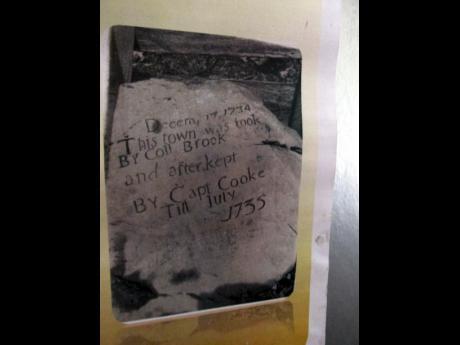 Decem, 17, 1734
This town was took
BY Coll Brook
and after kept
BY Capt Cooke
Till July
1735